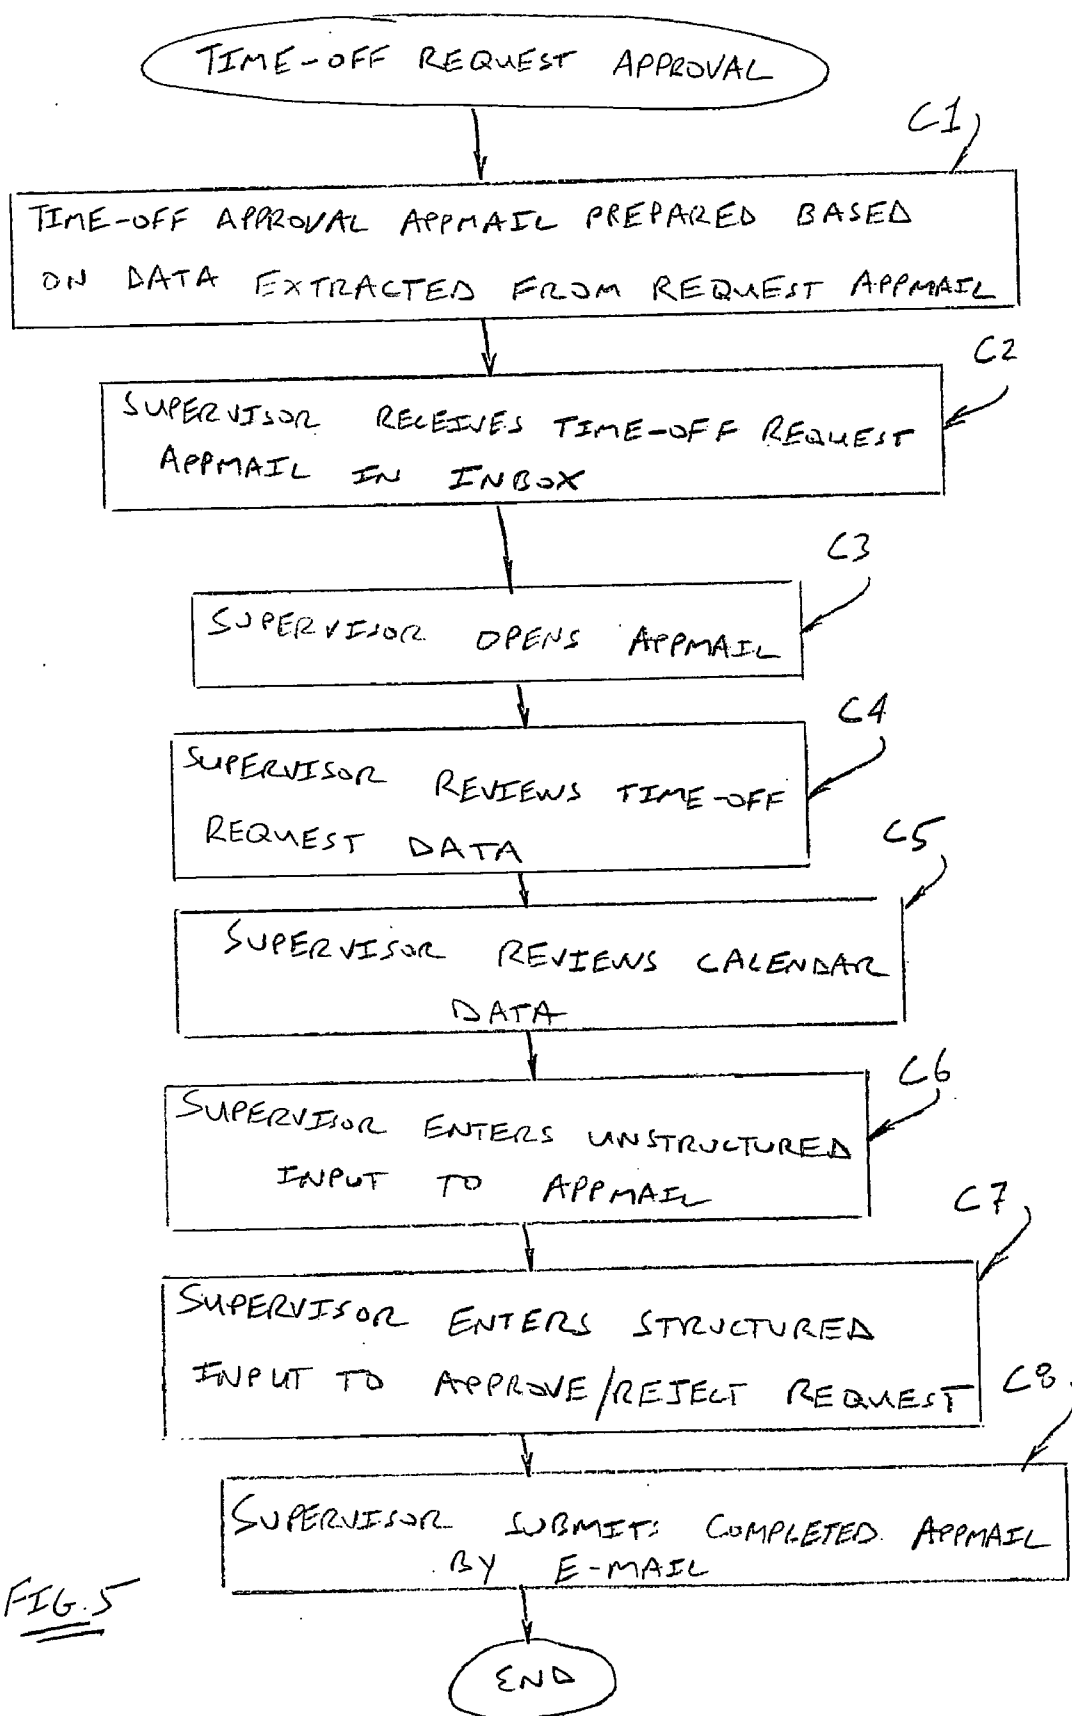 TIME-OFF REQUEST APPROVAL
C1
TIME-OFF APPROVAL APPMAIL PREPARED BASED
ON DATA EXTRACTED FROM REQUEST APPMAIL
C2
SUPERVISOR RECEIVES TIME-OFF REQUEST
APPMAIL IN INBOX
C3
SUPERVISOR OPENS APPMAIL
C4
SUPERVISOR REVIEWS TIME-OFF
REQUEST DATA
C5
SUPERVISOR REVIEWS CALENDAR
DATA
C6
SUPERVISOR ENTERS UNSTRUCTURED
INPUT TO APPMAIL
C7
SUPERVISOR ENTERS STRUCTURED
INPUT TO APPROVE/REJECT REQUEST
C8
SUPERVISOR SUBMITS COMPLETED APPMAIL
BY E-MAIL
FIG. 5
END